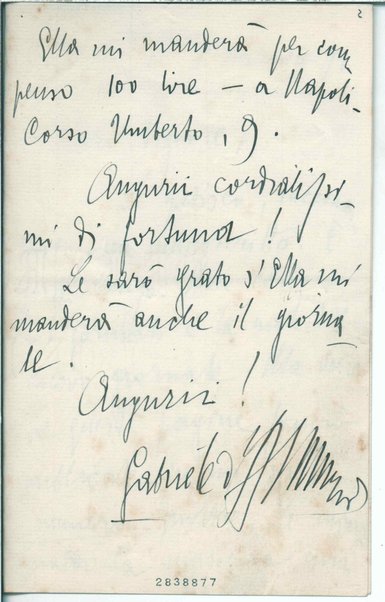 2
Ella mi manderà per com
penso 100 lire — a Napoli-
Corso Umberto, 9.
Augurii cordialissi-
mi di fortuna!
Le sarò grato s'Ella mi
manderà anche il giorna
le.
Augurii!
Gabriele d'Annunzio
2838877